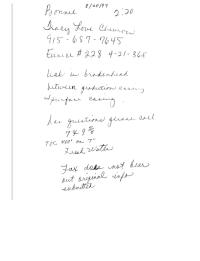 8/20/97
Bonnie 2:20
Tracy Love Chevron
915-687-7645
Eunice # 228 4-21-36e
leak in bradenhead
between production casing
& surface casing.
has questions please call
7 & 9 5/8
TIC 400' on 7"
Fresh Water
Fax does not have
out original info
submitted